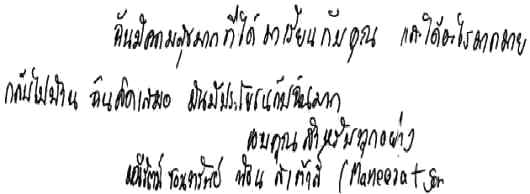 ฉันมีความสุขมากที่ได้ มาเรียนกับคุณ และได้อะไรมากมาย
กลับไปบ้าน ฉันคิดเสมอ มันมีประโยชน์กับฉันมาก
ขอบคุณสำหรับทุกอย่าง
(Maneerat